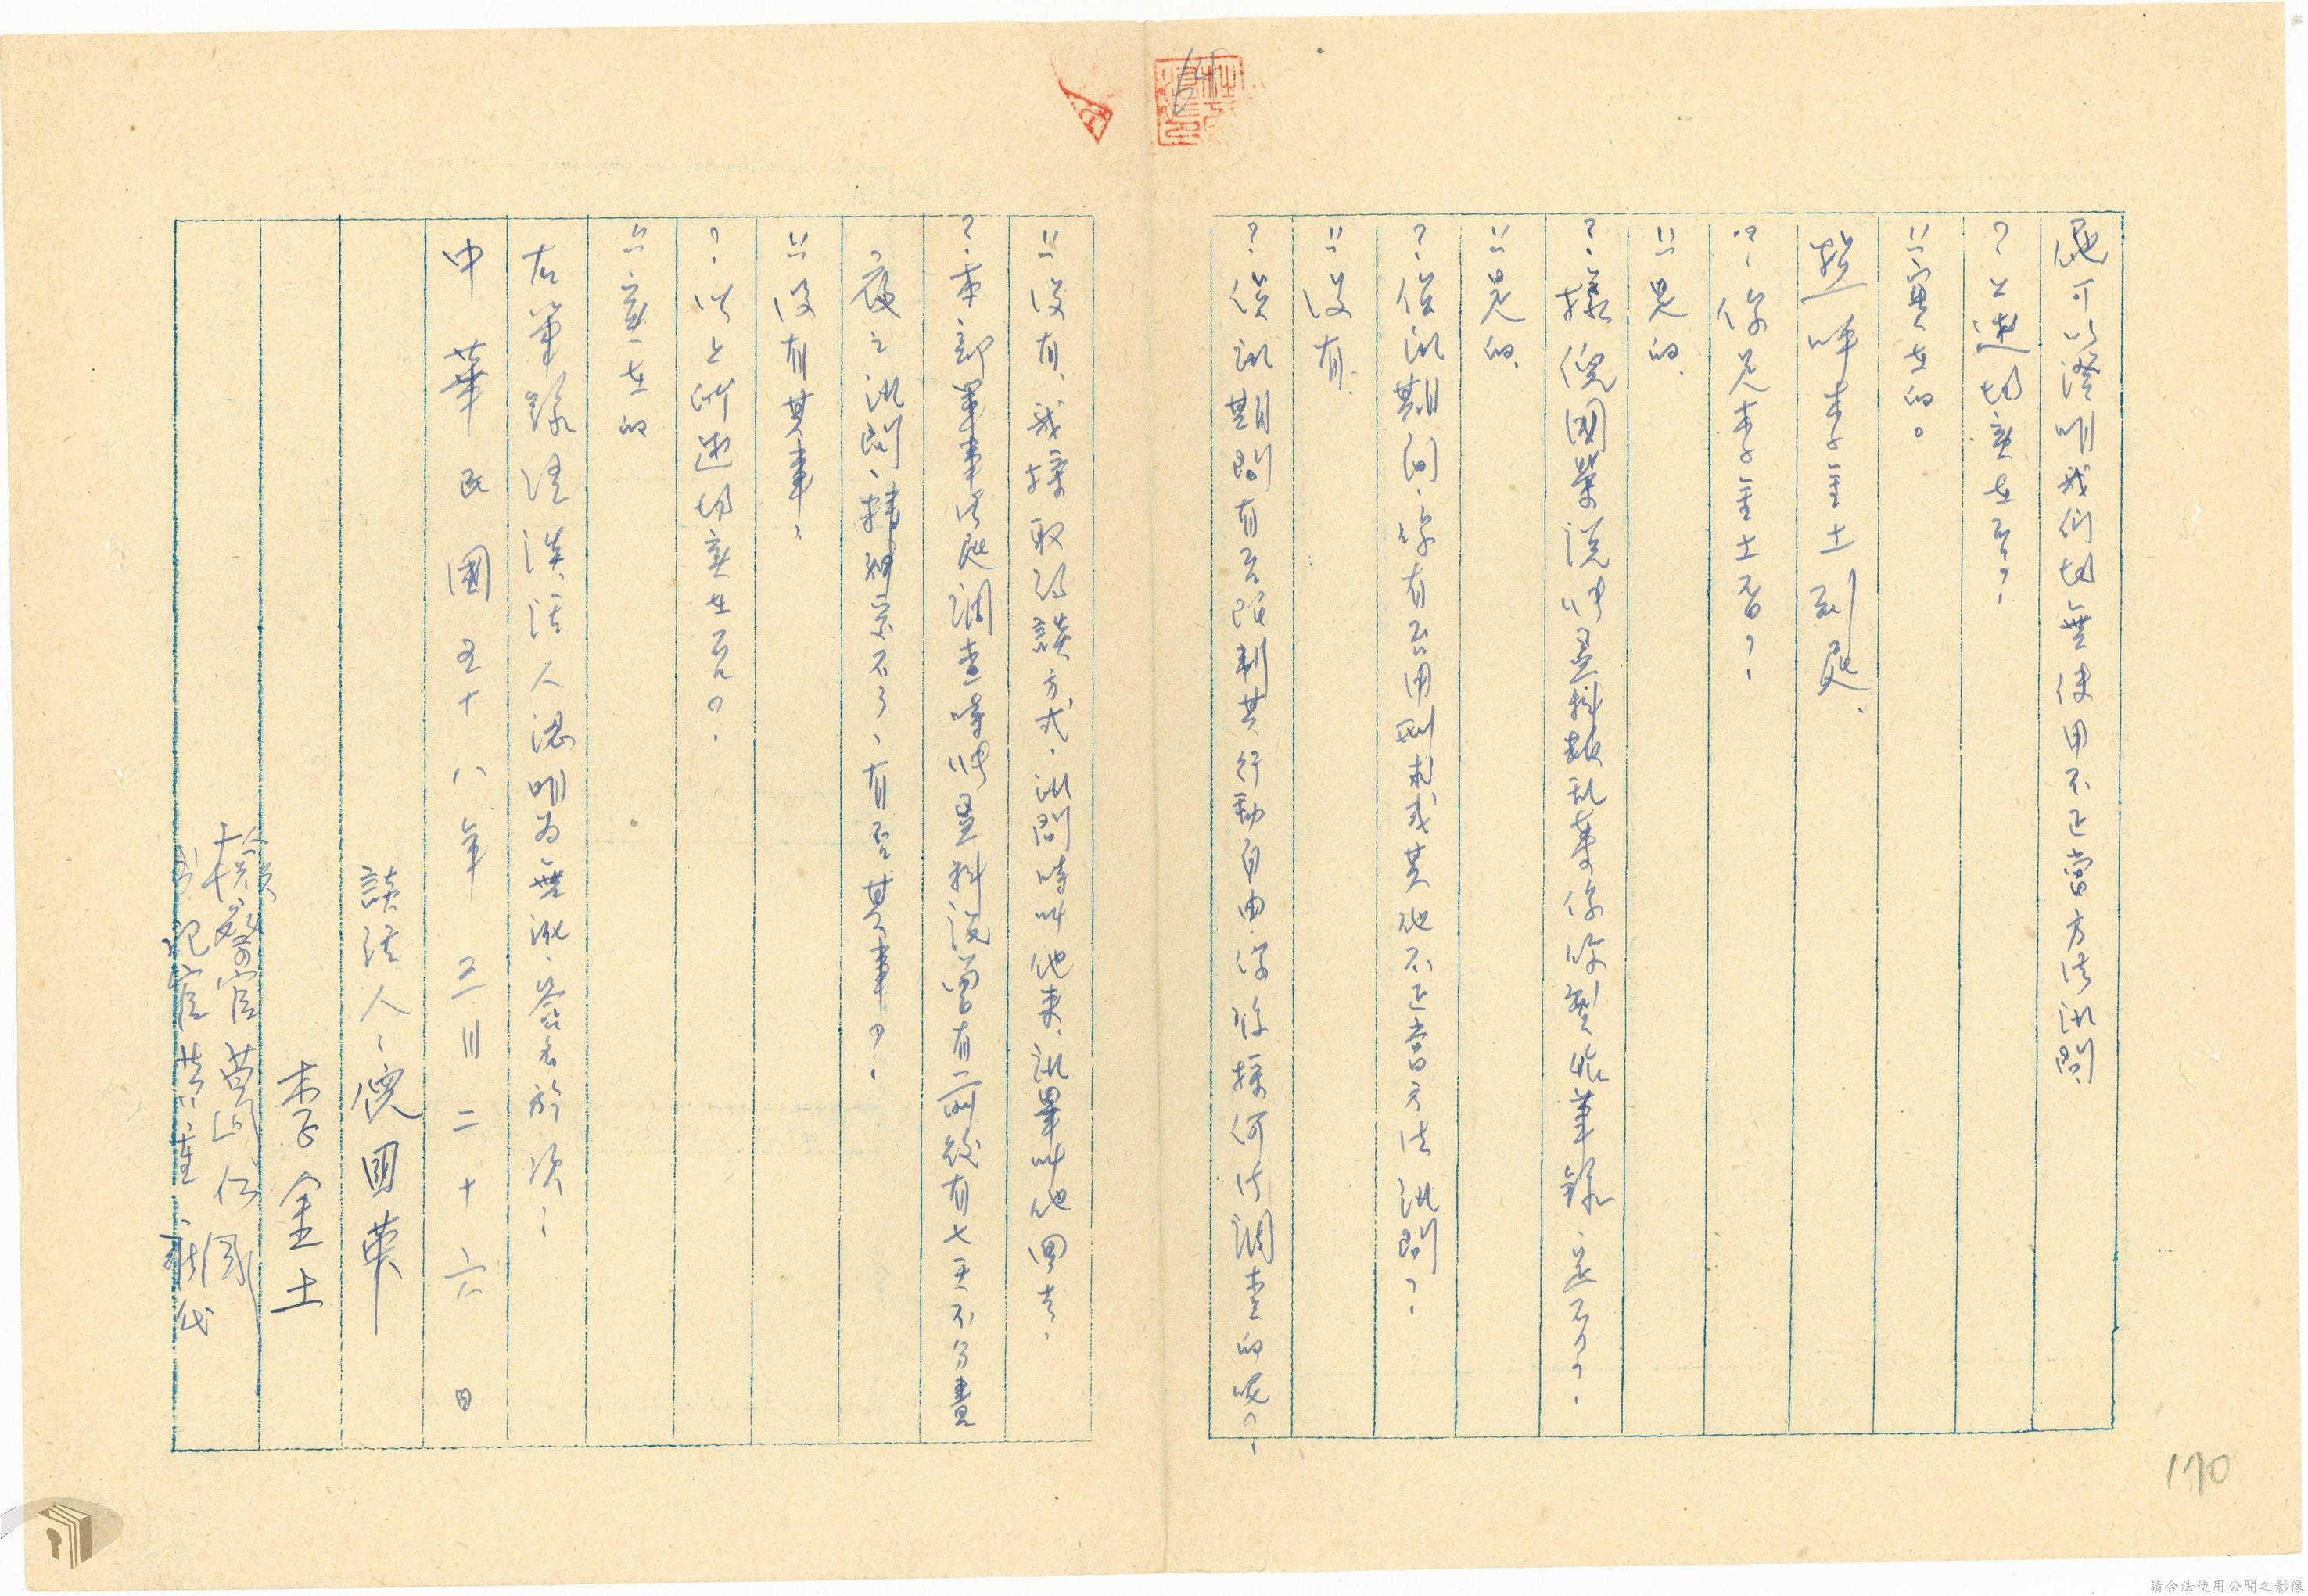 他可以證明我們均無使用不正當方法訊問
？上述均實在否？
：實在的。
點呼李金土到庭
？你是李金土否？
：是的
？據倪國榮說 是 叛亂案係你製作筆錄、是否？
：是的
？偵訊期間、你有否用刑求或其他不正當方法訊問？
：沒有
？偵訊期間有否限制其行動自由、你係採何法調查的呢？
：沒有、我採取約談方式、訊問時叫他來、訊畢叫他回去、
？本部軍事法庭調查時 說曾有二 有七天不分晝
夜之訊問、精神 不了、有否其事？
：沒有其事、
？以上所述均實在否？
：實在的
右筆錄經談話人認明為無訛、簽名於次：
中華民國五十八年三月二十六日
談話人：倪國榮
李金土
檢察官
書記官
170
請合法使用公開之影像